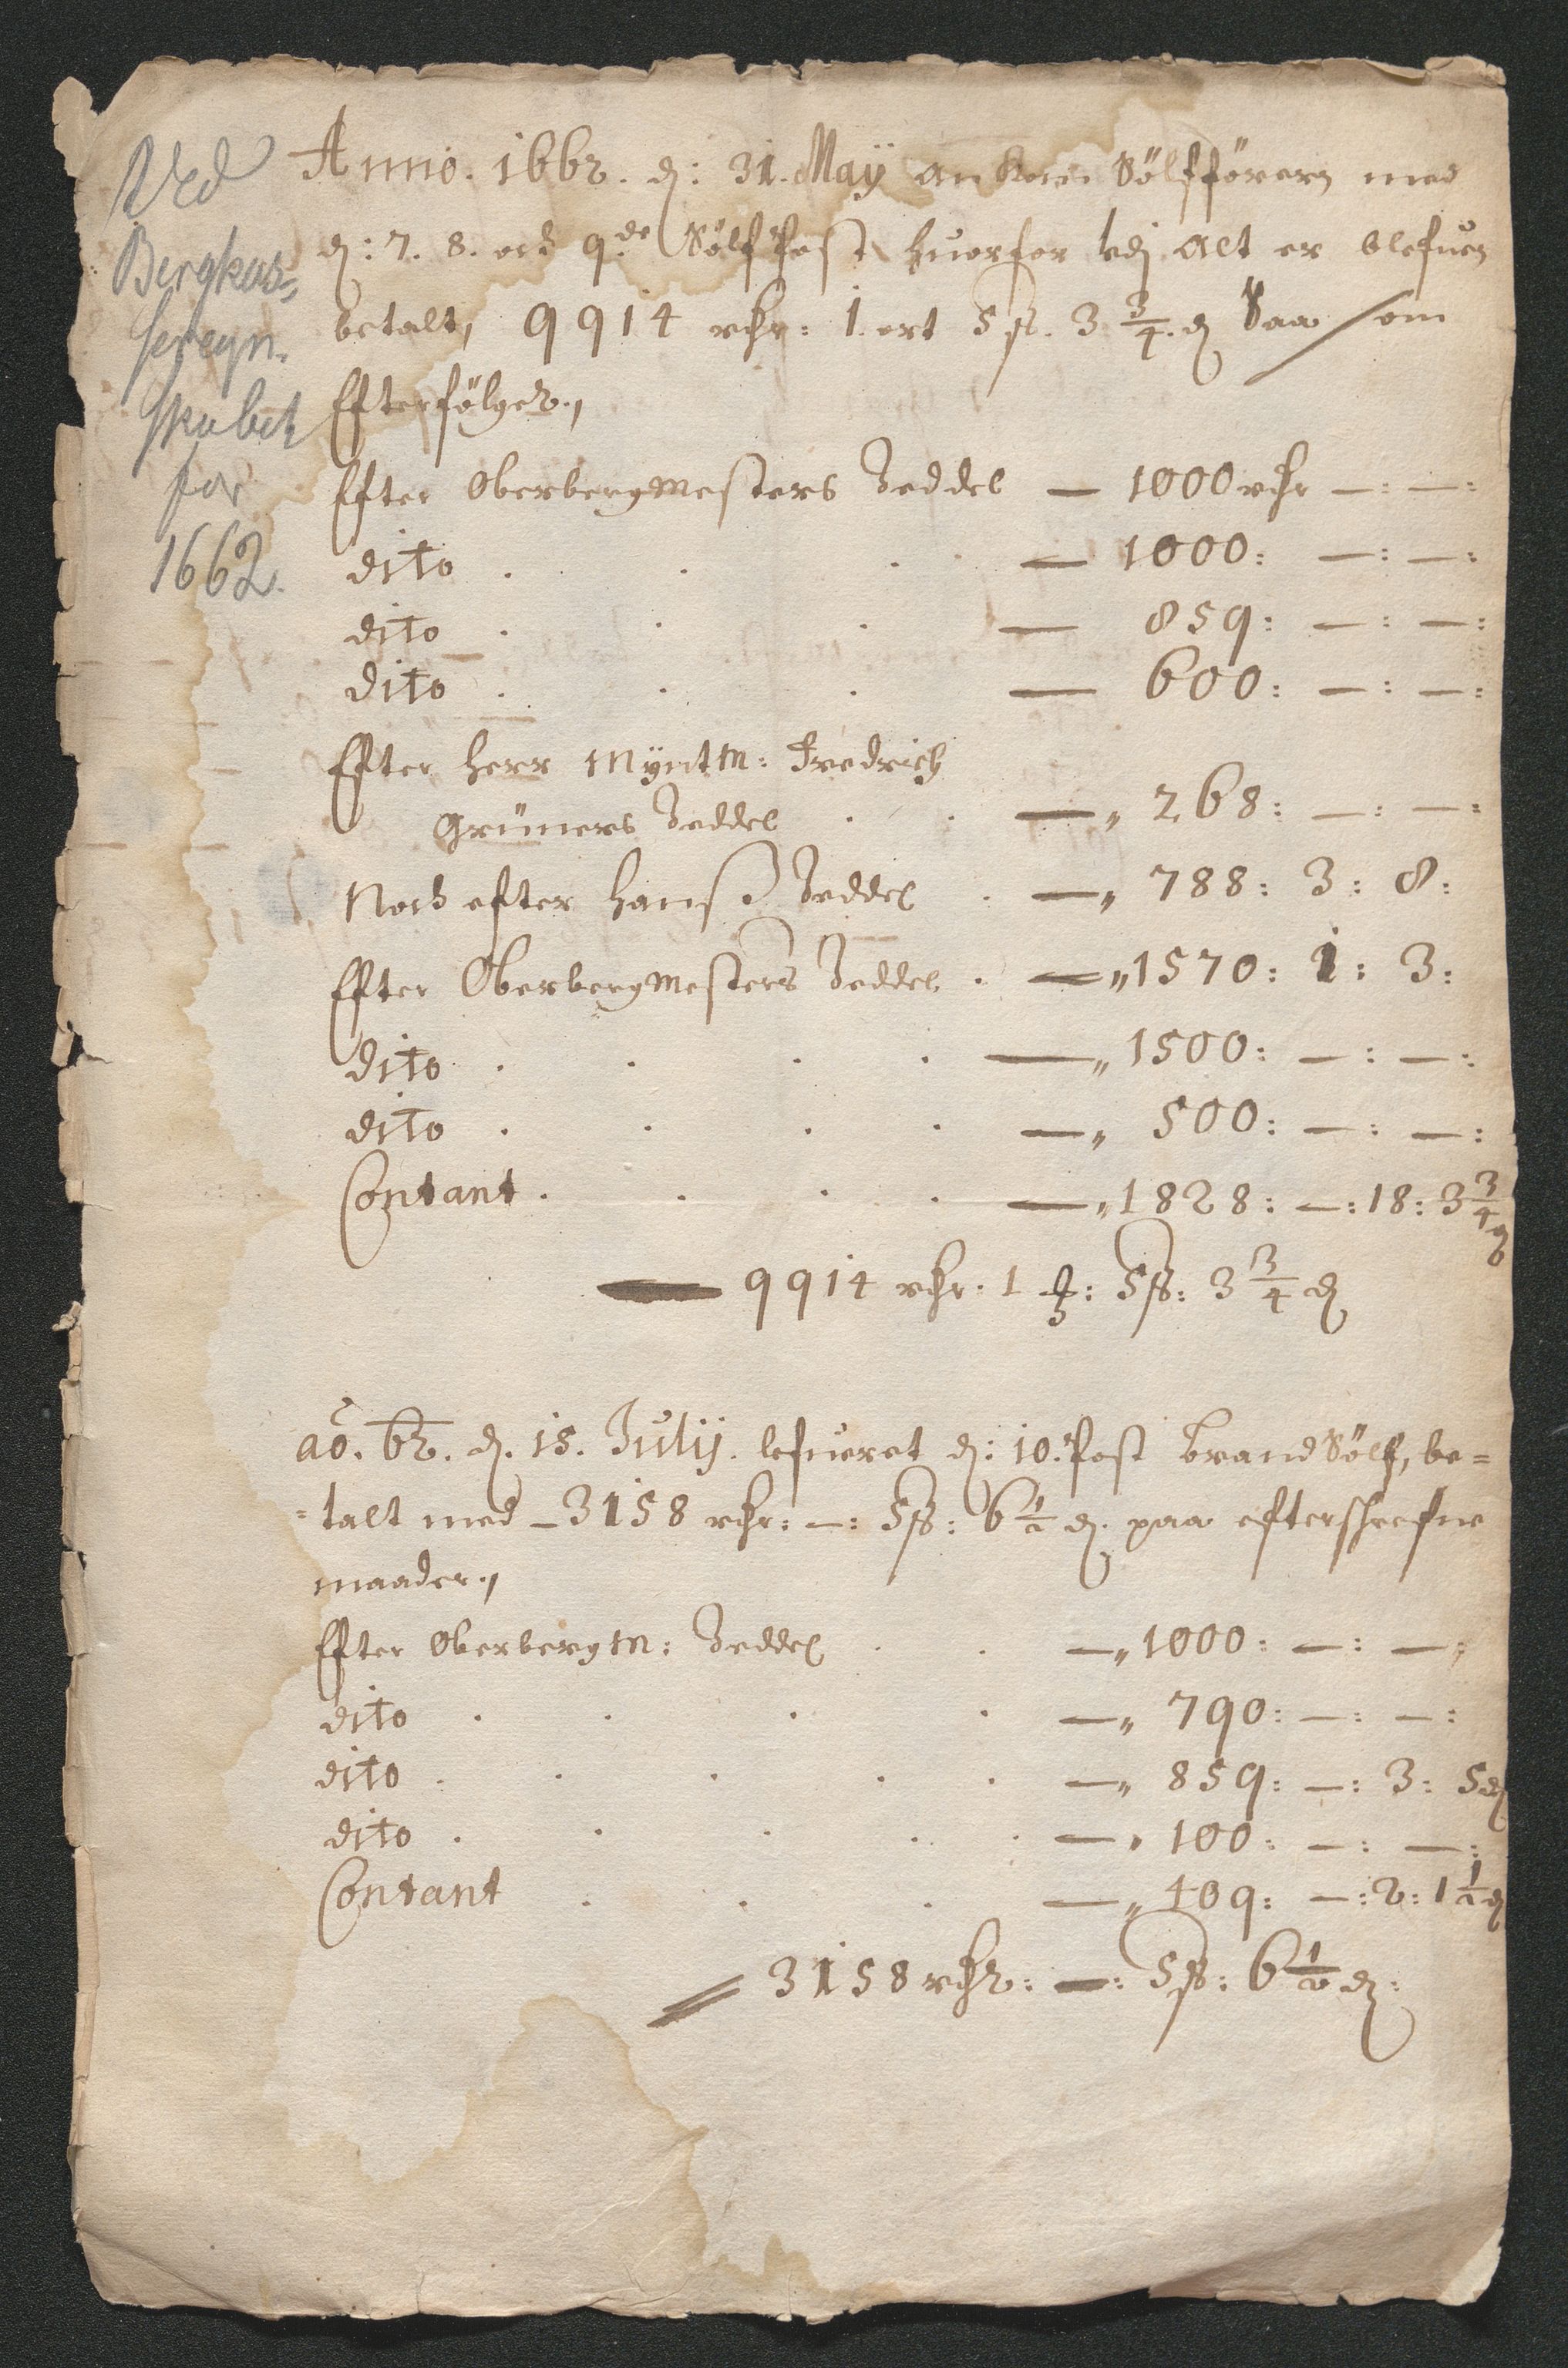 Ved
Bergkas-
seregn-
skabet
for
1662.
Anno. 1662. d: 31. Maÿ Ankom Sölfförern med
d: 7. 8. och 9de Sölf Post huorfor udj Alt er blefuen
betalt, 9914 rdr: 1. ort 5 ß. 3 3/4. d Saa som
Efterfölger.,
Efter Oberbergmesters Zeddel — 1000 rdr —: —:
dito . . . — 1000: —: —:
dito . . . — 859: —: —:
dito . . . — 600: —: —:
Efter Herr Mÿntm: Fredrich
Grüners Zeddel . . —„ 268: —: —:
Noch efter Hanß Zeddel . —„ 788: 3: 8:
Efter Oberbergmesters Zeddel . —„ 1570: 1: 3:
dito . . . . —„ 1500: —: —:
dito . . . . —„ 500: —: —:
Contant . . . . —„ 1828: —: 18: 3 3/4 d
— 9914 rdr: 1 ƺ: 5 ß: 3 3/4 d
ao. 62. d. 15. Julij. lefueret d: 10. Post brand Sölf, be=
=talt med – 3158 rdr: —: 5 ß: 6 1/2 d. paa efterschrefne
maader.,
Efter Oberbergm: Zeddel . . —„ 1000: —: —:
dito . . . . —„ 790: —: —:
dito . . . . . —„ 859: —: 3: 5 d
dito . . . . . —„ 100: —: —:
Contant . . . —„ 409: —: 2: 1 1/2 d
3158 rdr: —: 5 ß: 6 1/2 d: